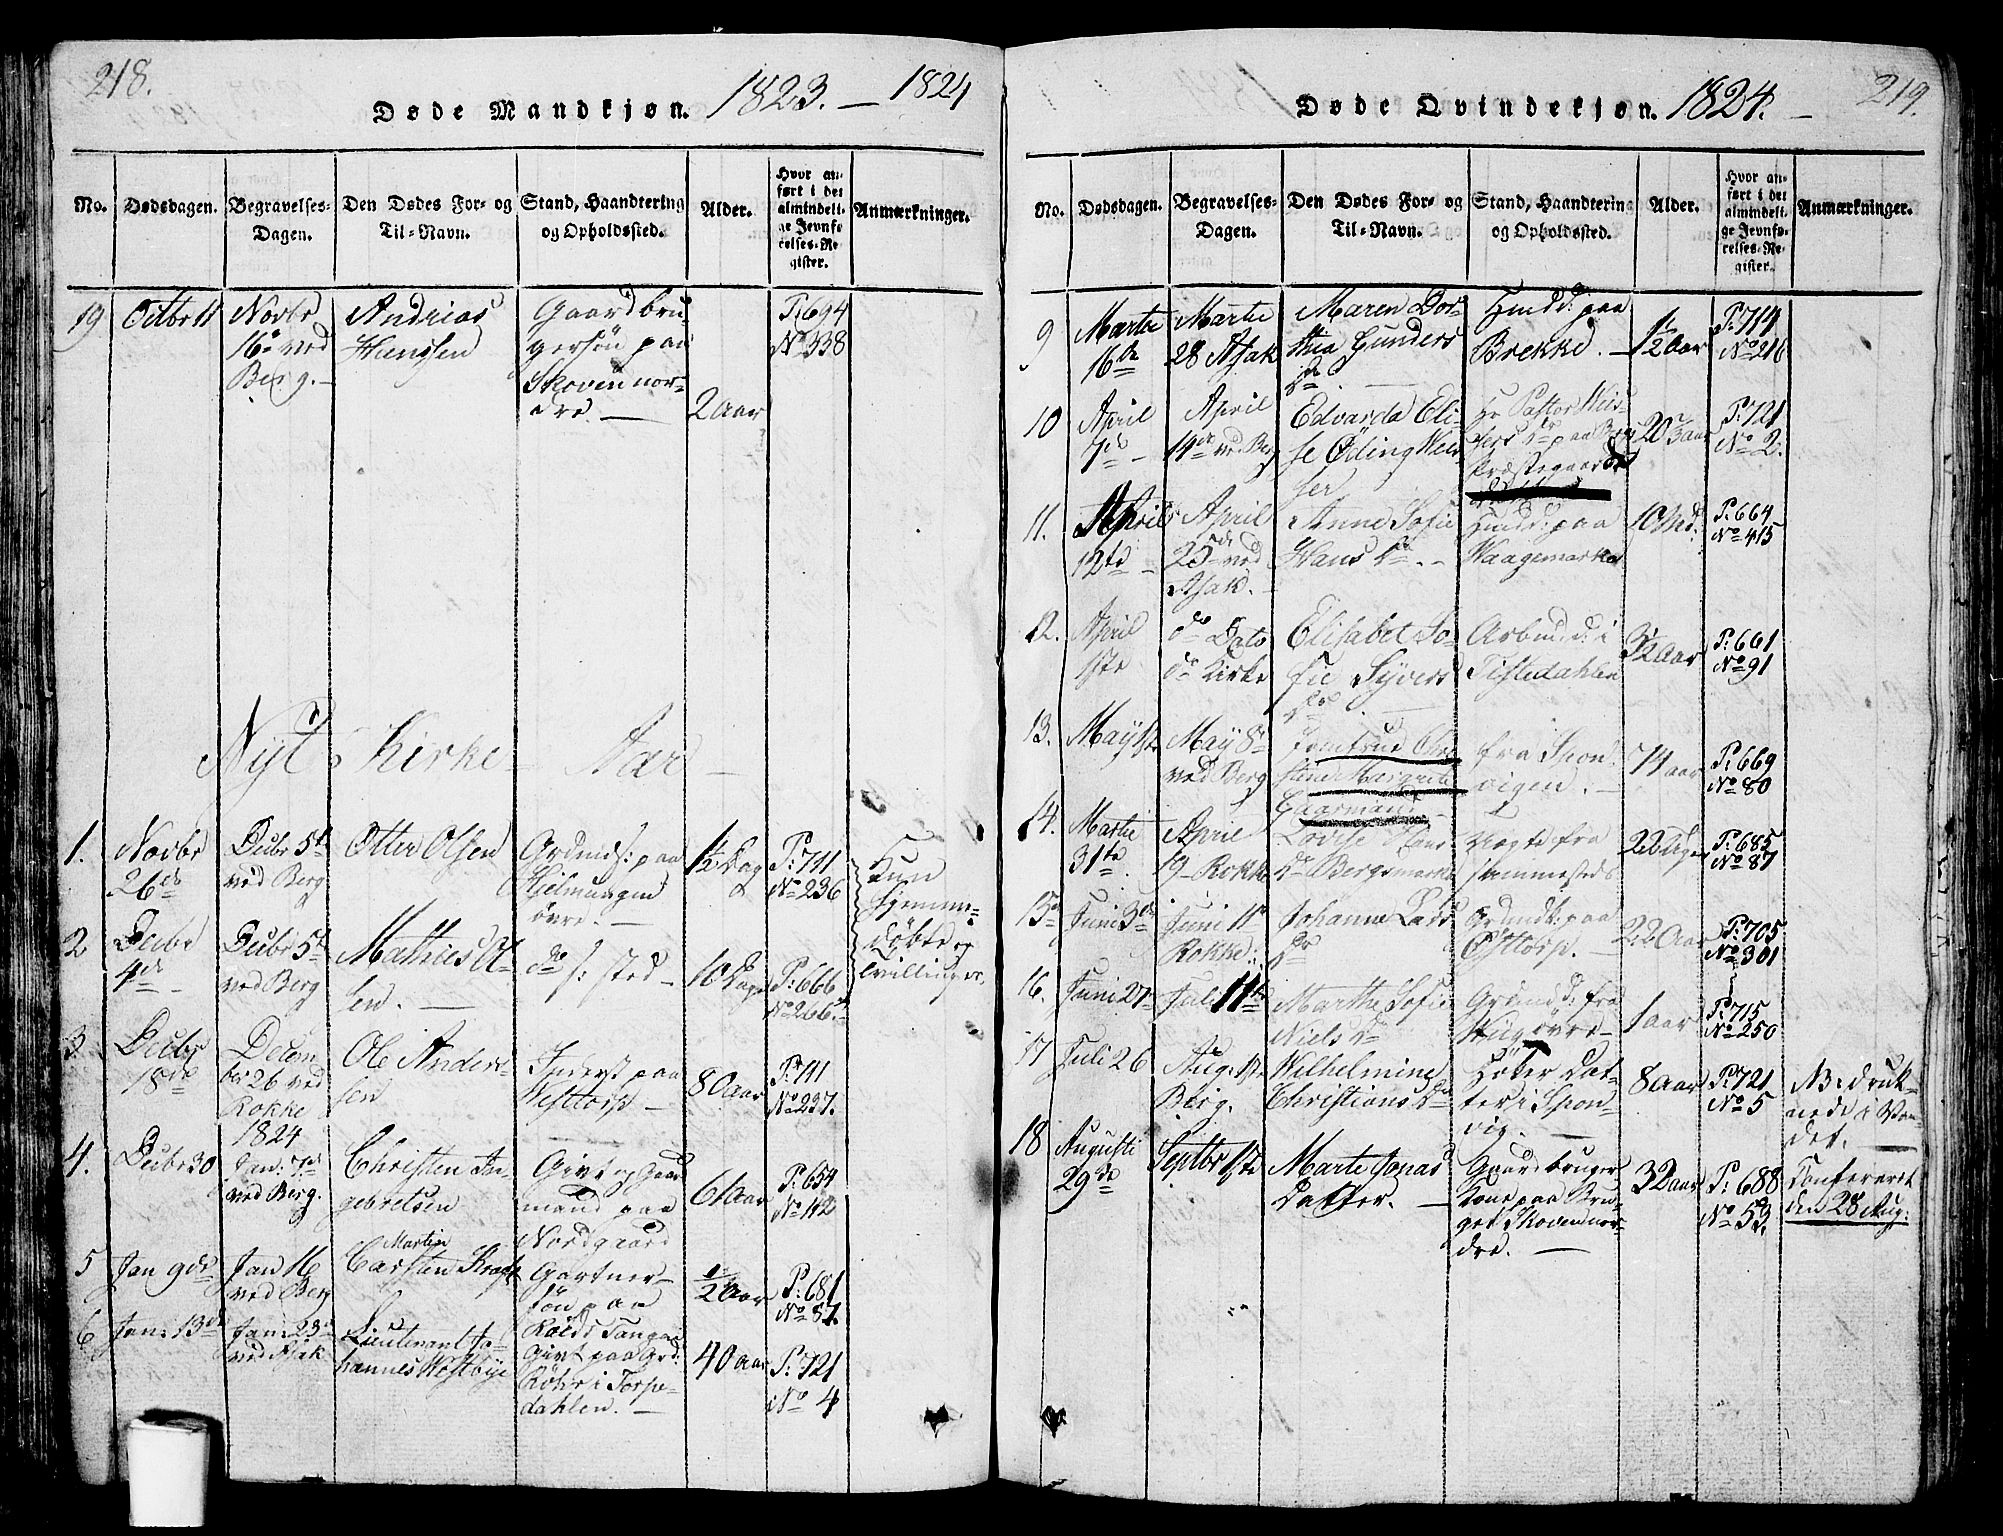 218.
Døde Mandkjøn. 1823. — 1824
No.
Dødsdagen.
Begravelses-
Dagen.
Den Dødes For- og
Til-Navn.
Stand, Haandtering
og Opholdssted.
Alder.
Hvor an-
ført i det
almindeli-
ge Jevnfø-
relses-Re-
gister.
Anmærkninger.
19 Octbr 11
Novbr
16 ved
Berg. —
Andrias
Hanssen
Gaardbru-
gersøn paa
Skoven nor-
dre. —
2 Aar
P: 694
No 338
Nyt Kirke Aar —
1. Novbr
26de
Decbr 5te
ved Berg
Otter Olsen
Grdmds: paa
Hjelmungen
øvre. —
1½ Dag
P: 711
No 236
Kun
hjemme-
døbte og
tvillinger.
2 Decbr
4de —
Decbr 5te
ved Berg
Mathies Ol-
sen. —
do s: sted —
10 Dage
P: 666
No 266.
3. Decbr
18de
Decem-
ber 26 ved
Rokke
Ole Anders-
sen
Inderst paa
Westtorp —
80 Aar
P: 711
No 237.
4. Decbr 30
1824
Jan: 7de
ved Berg.
Christen In-
gebretsen
Givt og Gaard
mand paa
Nordgaard
61 Aar
P: 654
No 142
5 Jan 9de
Jan 16
ved Berg
Martin
Carsten Kraft
Gartner-
søn paa
Røeds Tangen
½ Aar
P: 681
No 87.
6 Jan: 13de
Jan: 23de
ved Asak
Lieutenant Jo-
hannes Westbye
Givt paa Grd:
Røhr i Torpe-
dahlen. —
40 Aar
P: 721
No 4
Døde Qvindekjøn. 1824. —
219.
No.
Dødsdagen.
Begravelses-
Dagen.
Den Dødes For- og
Til-Navn.
Stand, Haandtering
og Opholdssted.
Alder.
Hvor an-
ført i det
almindeli-
ge Jevnfø-
relses-Re-
gister.
Anmærkninger.
9 Marti
16de
Marti
28 Asak
Maren Dor-
thia Gunders
Dr. —
Husmd: paa
Brekke. —
½ Aar
P: 714
No 216
10 April
7de —
April
14de ved Berg
Edvarda Eli-
se Øding Wei-
ser
Hr Pastor Wei-
sers Dr paa Berg
Præstegaard
P: 721
No 2.
11. April
12te —
April
25de ved
Asak. —
Anne Sofie
Hans Dr. —
Husmd: paa
Waagemarken
10 Md:
P: 664
No 415
12. April
1ste
do Dato
do Kirke
Elisabet So-
fie Syvers
Dr. —
Arbmd: i
Tistedahlen
3½ Aar
P: 661
No 91
13. May 1ste
May 8de
ved Berg
Jomfrue Chri-
stine Margrete
Gaarmann
fra Spon-
vigen. —
74 aar
P: 669
No 80
14. Marti
31te
April
19 — Rokke
Lovise Hans
Dr Bergsmarke
22 Uger
P: 685
No 87
15 Juni 3de
Juni 11te
Rokke
Johanne Lars
Dr
Grdmd: paa
Østtorp. —
22 Aar
P: 705
No 301
16. Juni 27
Juli 11te
Marthe Sofie
Niels Dr
Grdmd: fra
øvre —
1 aar
P: 715
No 250
17 Juli 26
Aug. 1ste
Berg.
Wilhelmine
Christians Dr
Høker Dat-
ter i Spon-
vig. —
8 Aar
P: 721
No 5
NB: druk-
nede i Van-
det. —
18 Augusti
29de
Septbr 1ste
Marte Jonas
Datter. —
Gaardbruger
Kone paa Bru-
get Skoven nor-
dre. —
32 Aar
P: 688
No 59.
Confereret
den 28 Aug: